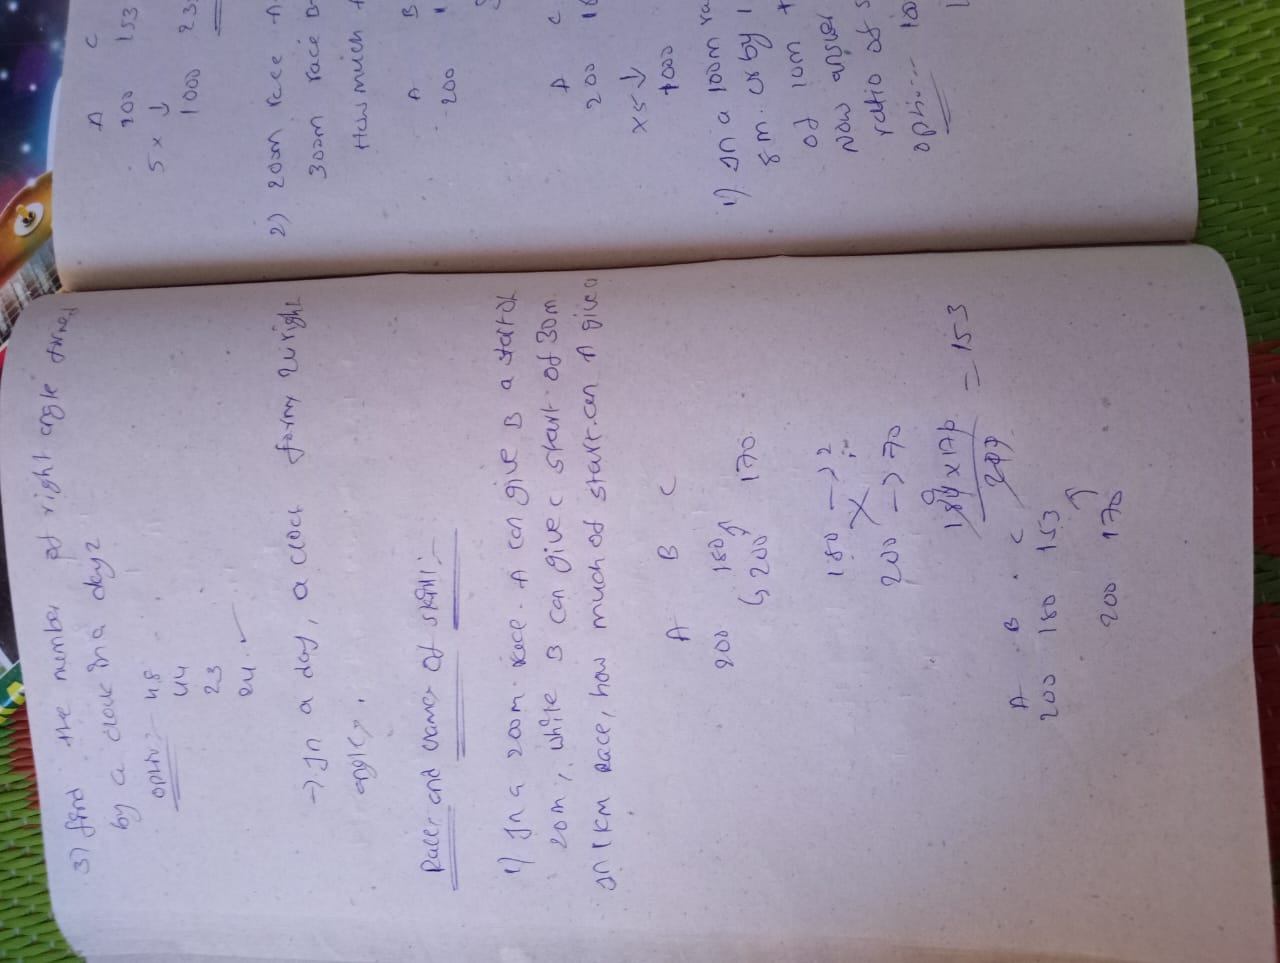 3) find the number of right angle formed
by a clock in a day?
option:- 48
44
23
24 ✓
→ In a day, a clock forms 24 right
angles.
Races and Games of skill:-
1) In a 200m race. A can give B a start of
20m, while B can give C start of 30m.
In 1 KM race, how much of start can A give
A B C
200 180
↳ 200 170
180 → ?
200 → 170
180 x 170
200
= 153
A B C
200 180 153
200 170
A C
200 153
5 x ↓
1000
2) 200m race
300m race
How much
A B
200
A C
200
x5 ↓
1000
1) In a 100m
8m. or by
of 10m
Now answer
ratio of
option:-